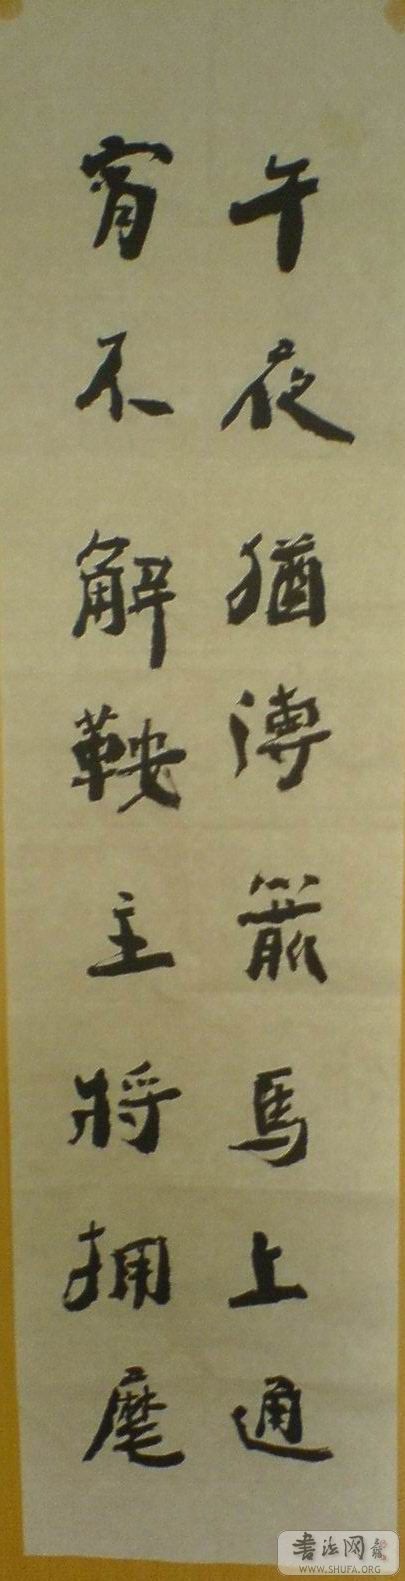 午夜猶傳箭馬上通
宵不解鞍主將擁麾
书法网
WWW.SHUFA.ORG